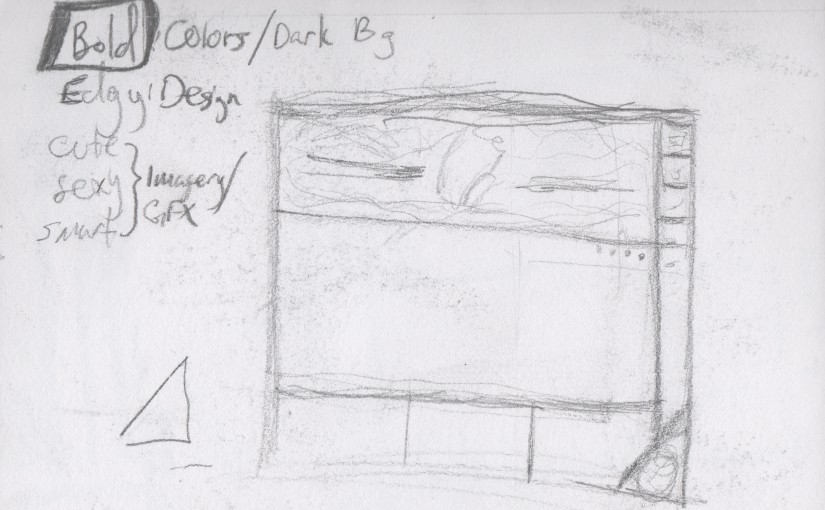 Bold Colors/Dark Bg
Edgy Design
cute
sexy
smart
Imagery/
GFX